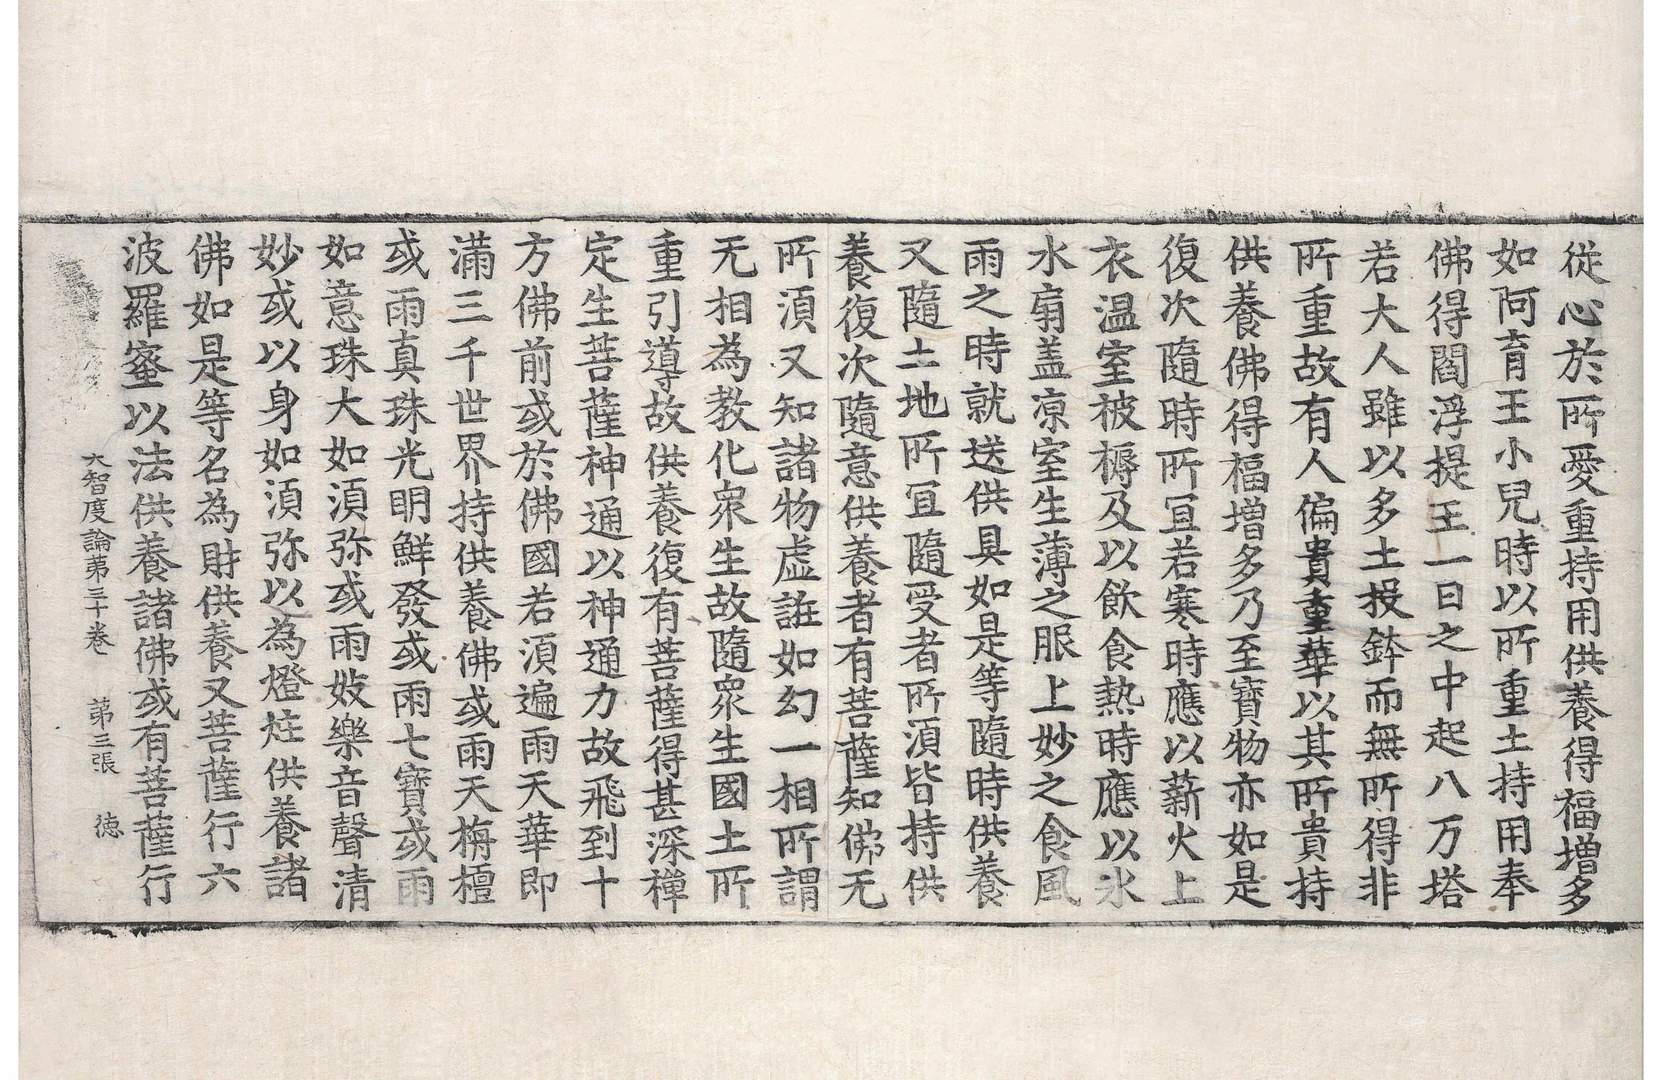 從心於所愛重持用供養得福增多
如阿育王小兒時以所重土持用奉
佛得閻浮提王一日之中起八万塔
若大人雖以多土投鉢而無所得非
所重故有人偏貴重華以其所貴持
供養佛得福增多乃至寶物亦如是
復次隨時所宜若寒時應以薪火上
衣温室被褥及以飲食熱時應以氷
水扇盖凉室生薄之服上妙之食風
雨之時就送供具如是等隨時供養
又隨土地所宜隨受者所須皆持供
養復次隨意供養者有菩薩知佛无
所須又知諸物虛誑如幻一相所謂
无相為教化衆生故隨衆生國土所
重引導故供養復有菩薩得甚深禪
定生菩薩神通以神通力故飛到十
方佛前或於佛國若須遍雨天華即
滿三千世界持供養佛或雨天栴檀
或雨真珠光明鮮發或雨七寶或雨
如意珠大如須弥或雨妓樂音聲清
妙或以身如須弥以為燈炷供養諸
佛如是等名為財供養又菩薩行六
波羅蜜以法供養諸佛或有菩薩行
大智度論苐三十卷 苐三張 徳